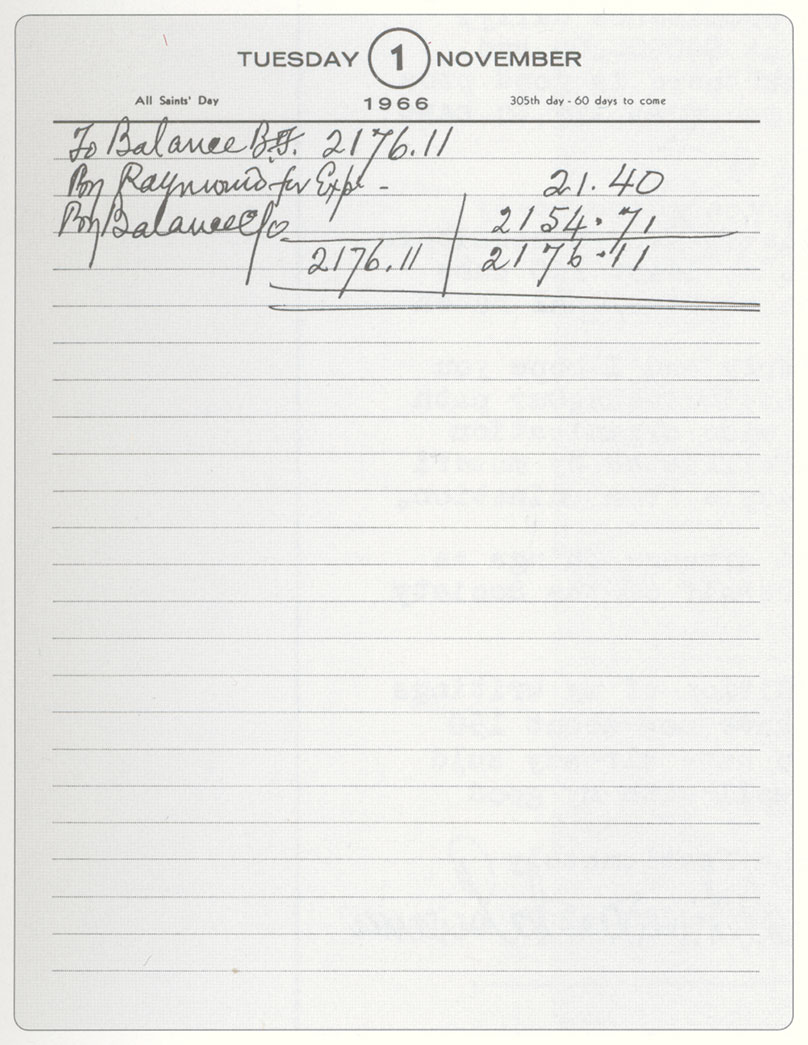 TUESDAY 1 NOVEMBER
All Saints' Day 1966 305th day - 60 days to come
To Balance B.F. 2176.11
By Raymond for Exp. - 21.40
By Balance c/o 2154.71
2176.11 2176.11